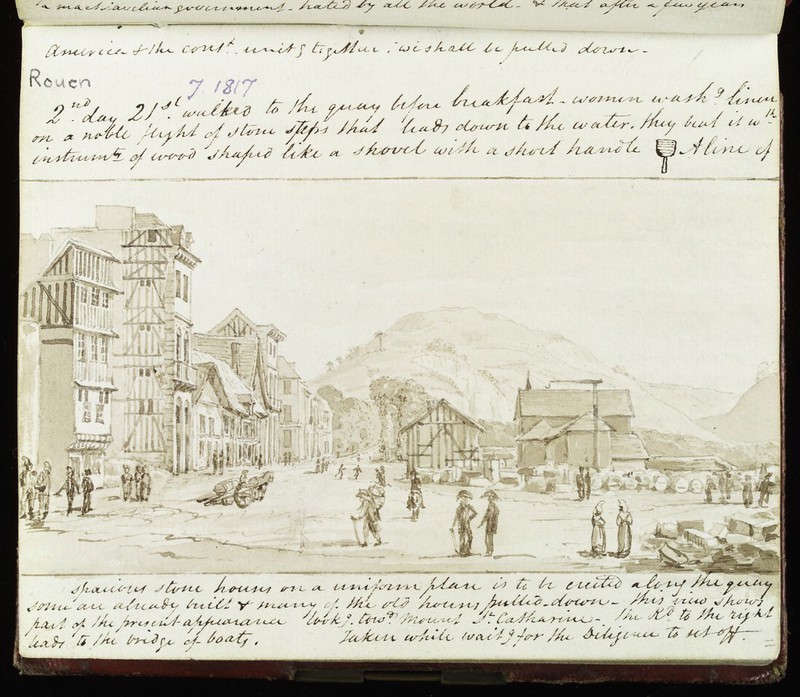 a machiavelian government - hated by all the world - & that after a few years
America & the cont.t unit.g together : we shall be pulled down -
Rouen
7. 1817
2.nd day 21st. walked to the quay before breakfast - women wash.g linen
on a noble flight of stone steps that leads down to the water. they beat it w.th
instrum.ts of wood shaped like a shovel with a short handle A line of
spacious stone houses on a uniform plan is to be erected along the quay
some are already built & many of the old houses pulled down - this view shows
part of the present appearance look.g tow.ds Mount St Catharine - the Rd. to the right
leads to the bridge of boats. Taken while wait.g for the Diligence to set off.